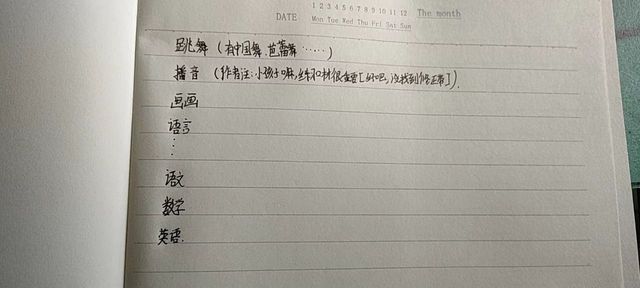 1 2 3 4 5 6 7 8 9 10 11 12 The month
DATE Mon Tue Wed Thu Fri Sat Sun
跳舞（有中国舞 芭蕾舞……）
播音（作者注:小孩子嘛,练口才很重要[好吧,没找到修正带]）.
画画
语言
⋮
语文
数学
英语.